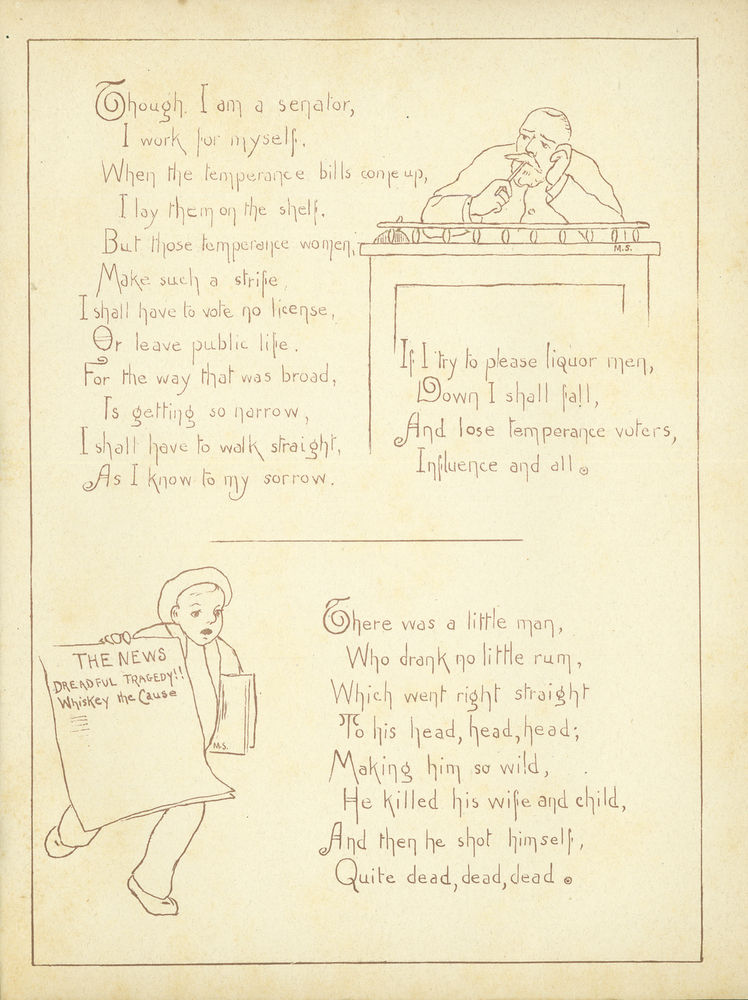 Though I am a senator,
I work for myself,
When the temperance bills come up,
I lay them on the shelf.
But those temperance women,
Make such a strife,
I shall have to vote no license,
Or leave public life.
For the way that was broad,
Is getting so narrow,
I shall have to walk straight,
As I know to my sorrow.
M.S.
If I try to please liquor men,
Down I shall fall,
And lose temperance voters,
Influence and all.
THE NEWS
DREADFUL TRAGEDY!!
Whiskey the Cause
M.S.
There was a little man,
Who drank no little rum,
Which went right straight
To his head, head, head;
Making him so wild,
He killed his wife and child,
And then he shot himself,
Quite dead, dead, dead.